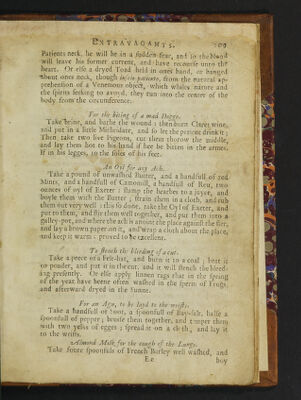 EXTRAVAGANTS. 209
Patients neck, he will be in a sudden fear, and so the blood
will leave his former current, and have recourse unto the
heart. Or else a dryed Toad held in ones hand, or hanged
about ones neck, though inscio patiente, from the natural ap-
prehension of a Venemous object, which whiles nature and
the spirits seeking to avoyd, they run into the center of the
body from the circumference.
For the biting of a mad Dogge.
Take brine, and bathe the wound: then burn Claret wine,
and put in a little Mithridate, and so let the patient drink it;
Then take two live Pigeons, cut them thorow the middle,
and lay them hot to his hand if hee be bitten in the armes.
If in his legges, to the soles of his feet.
An Oyl for any Ach.
Take a pound of unwashed Butter, and a handfull of red
Mints, and a handfull of Cammomill, a handfull of Reu, two
ounces of oyl of Exeter: stamp the hearbes to a joyce, and
boyle them with the Butter; strain them in a cloth, and rub
them out very well: this so done, take the Oyl of Exeter, and
put to them, and stir them well together, and put them into a
galley-pot, and where the ach is anoint the place against the fier,
and lay a brown paper on it, and wrap a cloth about the place,
and keep it warm: proved to be excellent.
To stench the bleeding of a cut.
Take a peece of a Felt-hat, and burn it to a coal; beat it
to powder, and put it in the cut, and it will stench the bleed-
ing presently. Or else apply linnen rags that in the spring
of the year have beene often washed in the sperm of Frogs,
and afterward dryed in the sunne.
For an Ague, to be layd to the wrists.
Take a handfull of soot, a spoonfull of Bay-salt, halfe a
spoonfull of pepper; bruise them together, and temper them
with two yelks of egges; spread it on a cloth, and lay it
to the wrists.
Almond Milk for the cough of the Lungs.
Take foure spoonfuls of French Barley well washed, and
Ee boy